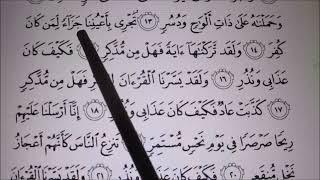 وَحَمَلْنَٰهُ عَلَىٰ ذَاتِ أَلْوَٰحٍ وَدُسُرٍ ١٣ تَجْرِى بِأَعْيُنِنَا جَزَآءً لِّمَن كَانَ
كُفِرَ ١٤ وَلَقَد تَّرَكْنَٰهَآ ءَايَةً فَهَلْ مِن مُّدَّكِرٍ ١٥ فَكَيْفَ كَانَ
عَذَابِى وَنُذُرِ ١٦ وَلَقَدْ يَسَّرْنَا ٱلْقُرْءَانَ لِلذِّكْرِ فَهَلْ مِن مُّدَّكِرٍ
١٧ كَذَّبَتْ عَادٌ فَكَيْفَ كَانَ عَذَابِى وَنُذُرِ ١٨ إِنَّآ أَرْسَلْنَا عَلَيْهِمْ
رِيحًا صَرْصَرًا فِى يَوْمِ نَحْسٍ مُّسْتَمِرٍّ ١٩ تَنزِعُ ٱلنَّاسَ كَأَنَّهُمْ أَعْجَازُ
نَخْلٍ مُّنقَعِرٍ ٢٠ فَكَيْفَ كَانَ عَذَابِى وَنُذُرِ ٢١ وَلَقَدْ يَسَّرْنَا ٱلْقُرْءَانَ